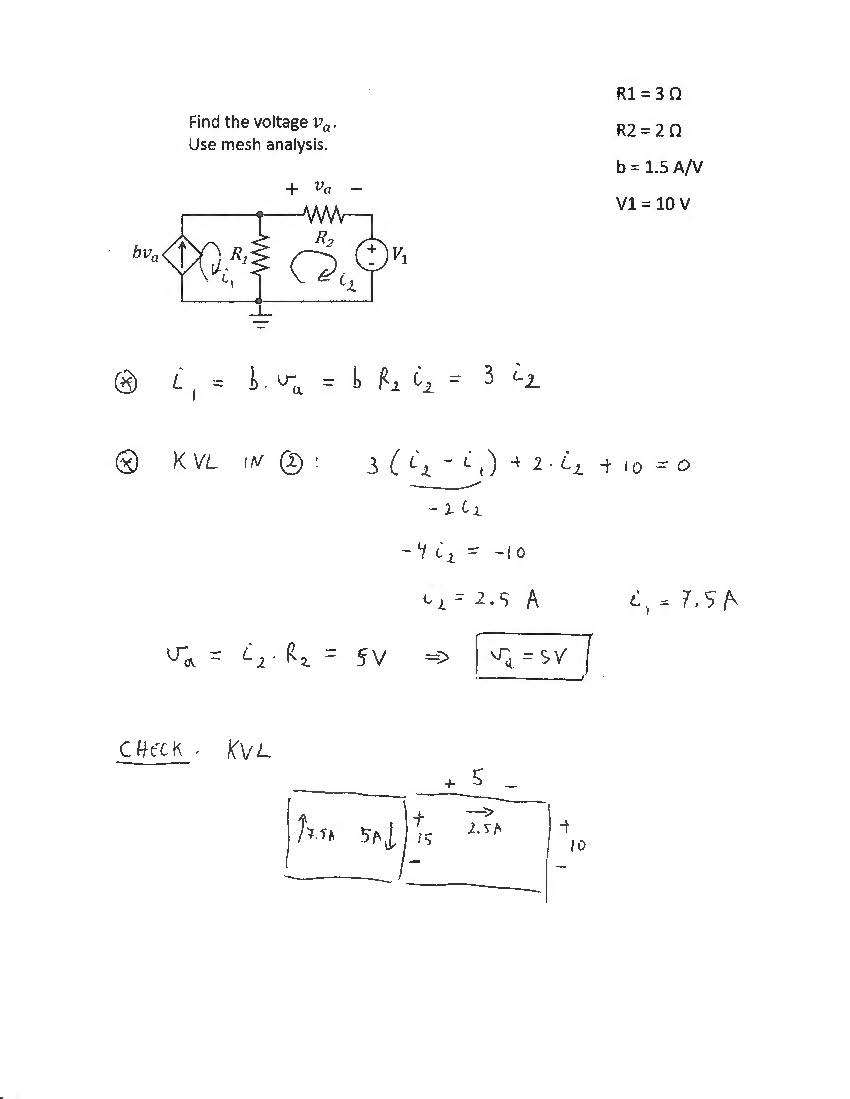 R1 = 3 Ω
Find the voltage vₐ.
R2 = 2 Ω
Use mesh analysis.
b = 1.5 A/V
V1 = 10 V
+ vₐ −
R₂
bvₐ
i₁
R₁
i₂
+
-
V₁
⊛ i₁ = b. vₐ = b R₂ i₂ = 3 i₂
⊛ KVL IN ② : 3 ( i₂ - i₁ ) + 2 . i₂ + 10 = 0
- 2 i₂
- 4 i₂ = -10
i₂ = 2.5 A i₁ = 7.5 A
vₐ = i₂ . R₂ = 5V ⇒ vₐ = 5V
CHECK. KVL
+ 5 −
↑7.5A 5A↓ + 15 − → 2.5A + 10 −